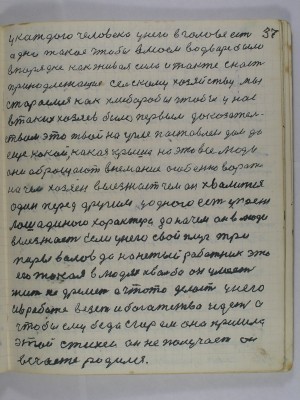 37
у каждого человека у него в голове ест
одно такое чтобы в моем подвор было
в порядке как живая сила и также снаст
принодлежащие селскому хозяйству мы
стараемся как хлиборобы чтобы у нас
в таких хозяев было первым доказател-
ством это твой на улце поставлен дом да
еще какой, какая крыша на это все люди
они обращают внемание особенно
на чем хозяен выезжает чем он хвалится
один перед другим у одного ест
лошадиного характера до на чем он в люди
выезжает Если у него свой плуг три
пары валов да нанетый работник это
его такая в людях хвалбо он умеет
жит не дремет а что то делат у него
и в работе везет и богатство идет а
чтобы ему беда с гарем она пришла
этой стихеи он не получает он
в счасте родился.